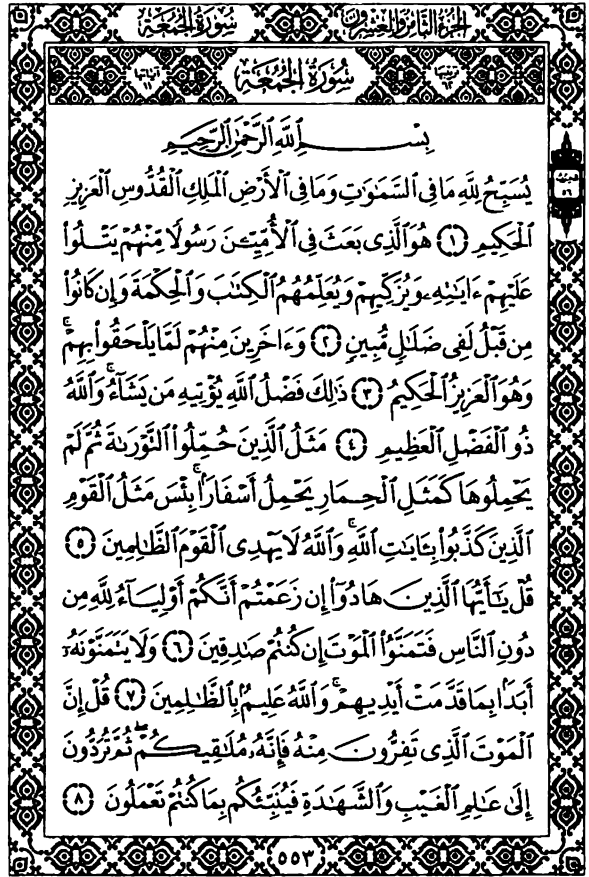 الجزء الثامن والعشرون سورة الجمعة
سُورَةُ الجُمُعَةِ
بِسْمِ ٱللَّهِ ٱلرَّحْمَٰنِ ٱلرَّحِيمِ
يُسَبِّحُ لِلَّهِ مَا فِي ٱلسَّمَٰوَٰتِ وَمَا فِي ٱلْأَرْضِ ٱلْمَلِكِ ٱلْقُدُّوسِ ٱلْعَزِيزِ
ٱلْحَكِيمِ ١ هُوَ ٱلَّذِي بَعَثَ فِي ٱلْأُمِّيِّـۧنَ رَسُولًا مِّنْهُمْ يَتْلُوا۟
عَلَيْهِمْ ءَايَٰتِهِۦ وَيُزَكِّيهِمْ وَيُعَلِّمُهُمُ ٱلْكِتَٰبَ وَٱلْحِكْمَةَ وَإِن كَانُوا۟
مِن قَبْلُ لَفِي ضَلَٰلٍ مُّبِينٍ ٢ وَءَاخَرِينَ مِنْهُمْ لَمَّا يَلْحَقُوا۟ بِهِمْ ۚ
وَهُوَ ٱلْعَزِيزُ ٱلْحَكِيمُ ٣ ذَٰلِكَ فَضْلُ ٱللَّهِ يُؤْتِيهِ مَن يَشَآءُ ۚ وَٱللَّهُ
ذُو ٱلْفَضْلِ ٱلْعَظِيمِ ٤ مَثَلُ ٱلَّذِينَ حُمِّلُوا۟ ٱلتَّوْرَىٰةَ ثُمَّ لَمْ
يَحْمِلُوهَا كَمَثَلِ ٱلْحِمَارِ يَحْمِلُ أَسْفَارًۢا ۚ بِئْسَ مَثَلُ ٱلْقَوْمِ
ٱلَّذِينَ كَذَّبُوا۟ بِـَٔايَٰتِ ٱللَّهِ ۚ وَٱللَّهُ لَا يَهْدِي ٱلْقَوْمَ ٱلظَّٰلِمِينَ ٥
قُلْ يَٰٓأَيُّهَا ٱلَّذِينَ هَادُوٓا۟ إِن زَعَمْتُمْ أَنَّكُمْ أَوْلِيَآءُ لِلَّهِ مِن
دُونِ ٱلنَّاسِ فَتَمَنَّوُا۟ ٱلْمَوْتَ إِن كُنتُمْ صَٰدِقِينَ ٦ وَلَا يَتَمَنَّوْنَهُۥٓ
أَبَدًۢا بِمَا قَدَّمَتْ أَيْدِيهِمْ ۚ وَٱللَّهُ عَلِيمٌۢ بِٱلظَّٰلِمِينَ ٧ قُلْ إِنَّ
ٱلْمَوْتَ ٱلَّذِي تَفِرُّونَ مِنْهُ فَإِنَّهُۥ مُلَٰقِيكُمْ ۖ ثُمَّ تُرَدُّونَ
إِلَىٰ عَٰلِمِ ٱلْغَيْبِ وَٱلشَّهَٰدَةِ فَيُنَبِّئُكُم بِمَا كُنتُمْ تَعْمَلُونَ ٨
٥٥٣